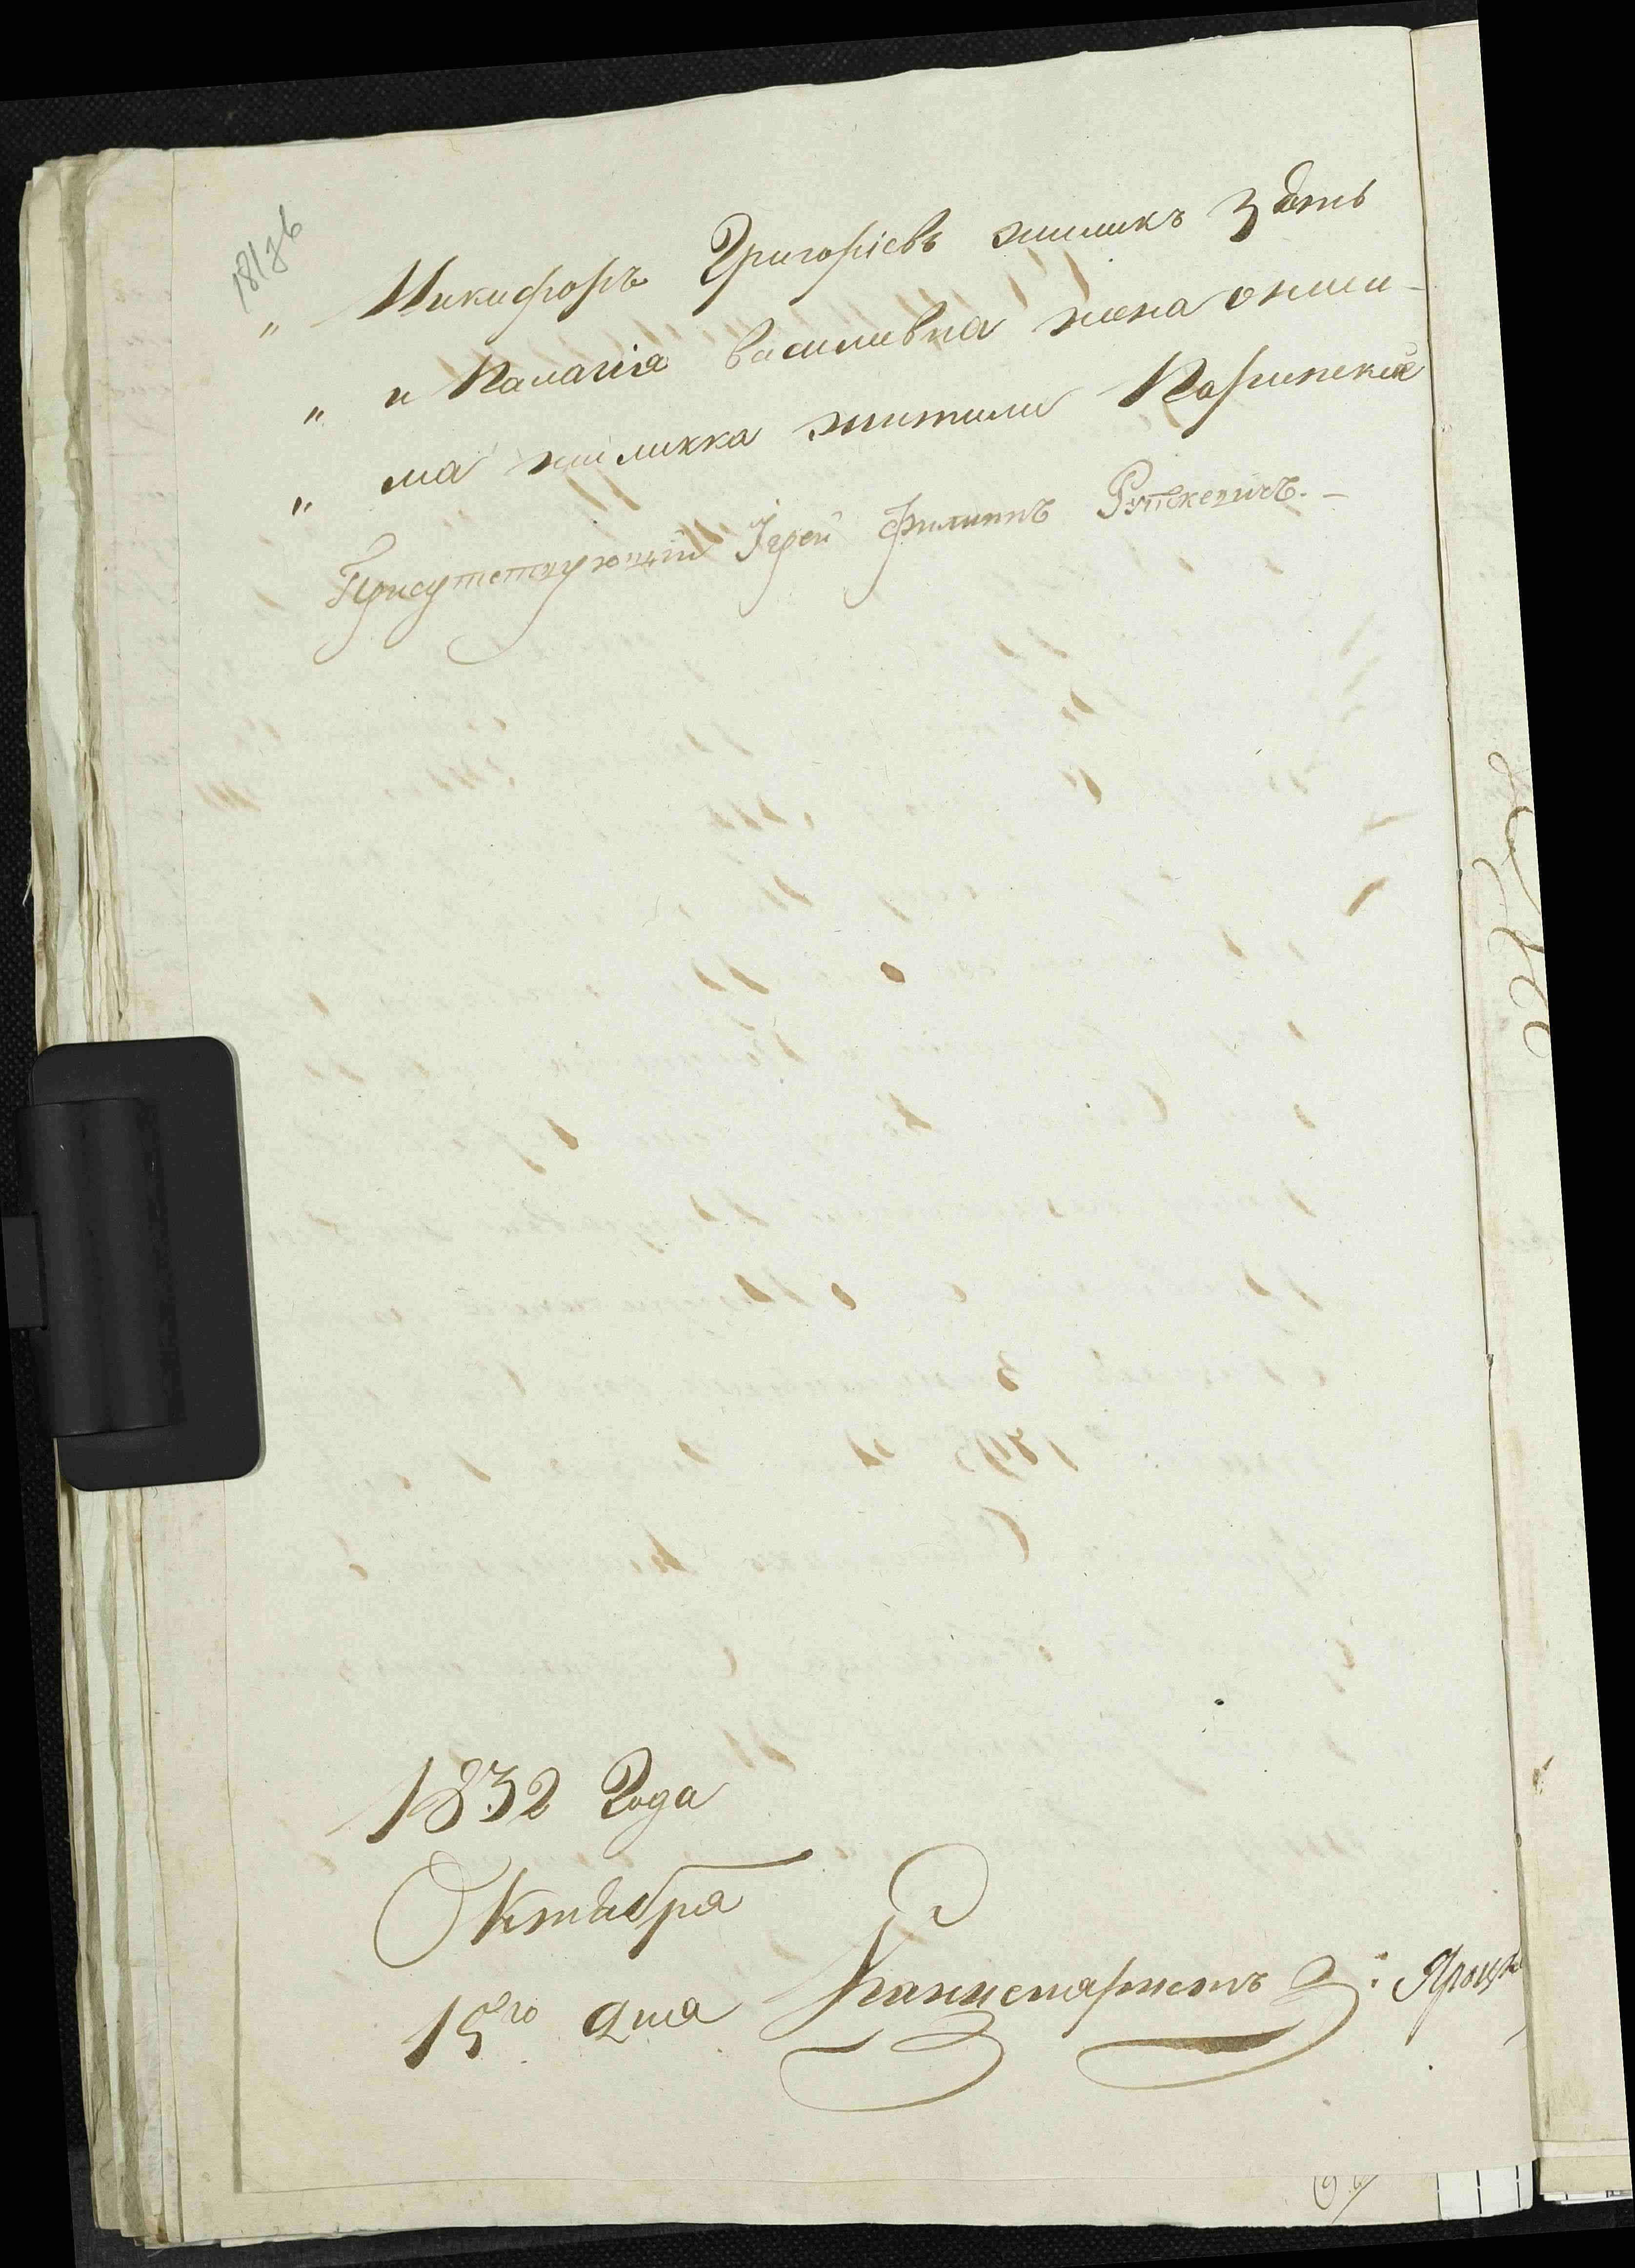 181зв
" Никифоръ Григоріевъ жиликъ Зять
" и Палагіа василивна жена онши-
" ма жиликка жители Коринскіе
Присутствующій Іерей Филиппъ Рутскевичъ. –
1832 Года
Октабра
15го дна Канцеляристъ : Яроцк